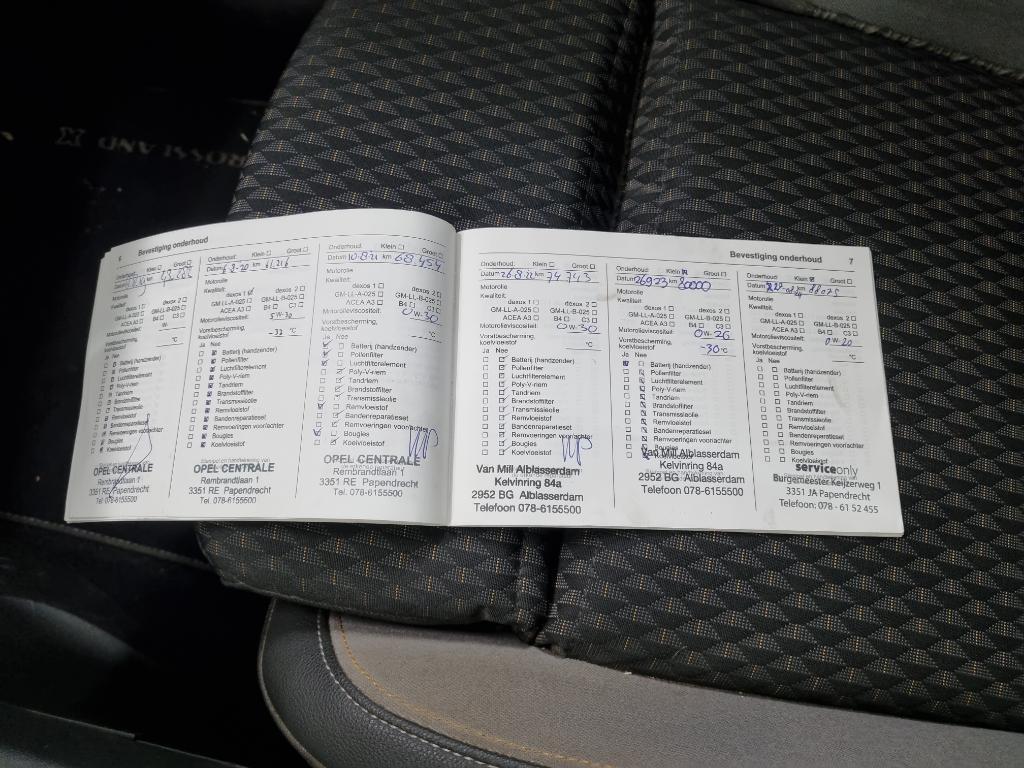 CROSSLAND X
6 Bevestiging onderhoud
Onderhoud: Klein ☐ Groot ☐
Datum km
Motorolie
Kwaliteit:
dexos 1 ☐ dexos 2 ☐
GM-LL-A-025 ☐ GM-LL-B-025 ☐
ACEA A3 ☐ B4 ☐ C3 ☐
Motorolieviscositeit:
W-
Vorstbescherming,
koelvloeistof °C
Ja Nee
Batterij (handzender)
Pollenfilter
Luchtfilterelement
Poly-V-riem
Tandriem
Brandstoffilter
Transmissieolie
Remvloeistof
Bandenreparatieset
Remvoeringen voor/achter
Bougies
Koelvloeistof
OPEL CENTRALE
Rembrandtlaan 1
3351 RE Papendrecht
Tel. 078-6155500
Onderhoud: Klein ☐ Groot ☐
Datum 6-8-20 km 61,216
Motorolie
Kwaliteit:
dexos 1 ☑ dexos 2 ☐
GM-LL-A-025 ☐ GM-LL-B-025 ☐
ACEA A3 ☐ B4 ☐ C3 ☐
Motorolieviscositeit:
5W-30
Vorstbescherming,
koelvloeistof -33 °C
Ja Nee
Batterij (handzender)
Pollenfilter
Luchtfilterelement
Poly-V-riem
Tandriem
Brandstoffilter
Transmissieolie
Remvloeistof
Bandenreparatieset
Remvoeringen voor/achter
Bougies
Koelvloeistof
OPEL CENTRALE
Rembrandtlaan 1
3351 RE Papendrecht
Tel. 078-6155500
Onderhoud: Klein ☐ Groot ☐
Datum 10-8-21 km 68,454
Motorolie
Kwaliteit:
dexos 1 ☐ dexos 2 ☐
GM-LL-A-025 ☐ GM-LL-B-025 ☐
ACEA A3 ☐ B4 ☐ C3 ☐
Motorolieviscositeit: 0W-30
Vorstbescherming,
koelvloeistof °C
Ja Nee
Batterij (handzender)
Pollenfilter
Luchtfilterelement
Poly-V-riem
Tandriem
Brandstoffilter
Transmissieolie
Remvloeistof
Bandenreparatieset
Remvoeringen voor/achter
Bougies
Koelvloeistof
OPEL CENTRALE
Rembrandtlaan 1
3351 RE Papendrecht
Tel. 078-6155500
Bevestiging onderhoud 7
Onderhoud: Klein ☐ Groot ☐
Datum 26-8-22 km 74743
Motorolie
Kwaliteit:
dexos 1 ☐ dexos 2 ☐
GM-LL-A-025 ☐ GM-LL-B-025 ☐
ACEA A3 ☐ B4 ☐ C3 ☐
Motorolieviscositeit: 0W-30
Vorstbescherming,
koelvloeistof °C
Ja Nee
Batterij (handzender)
Pollenfilter
Luchtfilterelement
Poly-V-riem
Tandriem
Brandstoffilter
Transmissieolie
Remvloeistof
Bandenreparatieset
Remvoeringen voor/achter
Bougies
Koelvloeistof
Van Mill Alblasserdam
Kelvinring 84a
2952 BG Alblasserdam
Telefoon 078-6155500
Onderhoud: Klein ☒ Groot ☐
Datum 26923 km 80000
Motorolie
Kwaliteit:
dexos 1 ☐ dexos 2 ☐
GM-LL-A-025 ☐ GM-LL-B-025 ☐
ACEA A3 ☐ B4 ☐ C3 ☐
Motorolieviscositeit: 0W-20
Vorstbescherming,
koelvloeistof -30 °C
Ja Nee
Batterij (handzender)
Pollenfilter
Luchtfilterelement
Poly-V-riem
Tandriem
Brandstoffilter
Transmissieolie
Remvloeistof
Bandenreparatieset
Remvoeringen voor/achter
Bougies
Koelvloeistof
Van Mill Alblasserdam
Kelvinring 84a
2952 BG Alblasserdam
Telefoon 078-6155500
Onderhoud: Klein ☒ Groot ☐
Datum km 88075
Motorolie
Kwaliteit:
dexos 1 ☐ dexos 2 ☐
GM-LL-A-025 ☐ GM-LL-B-025 ☐
ACEA A3 ☐ B4 ☐ C3 ☐
Motorolieviscositeit:
0W-20
Vorstbescherming,
koelvloeistof °C
Ja Nee
Batterij (handzender)
Pollenfilter
Luchtfilterelement
Poly-V-riem
Tandriem
Brandstoffilter
Transmissieolie
Remvloeistof
Bandenreparatieset
Remvoeringen voor/achter
Bougies
Koelvloeistof
serviceonly
Burgemeester Keijzerweg 1
3351 JA Papendrecht
Telefoon: 078 - 61 52 455